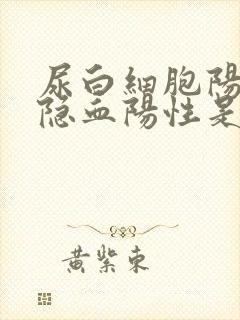 尿白細胞陽
隐血陽性是
黄紫東